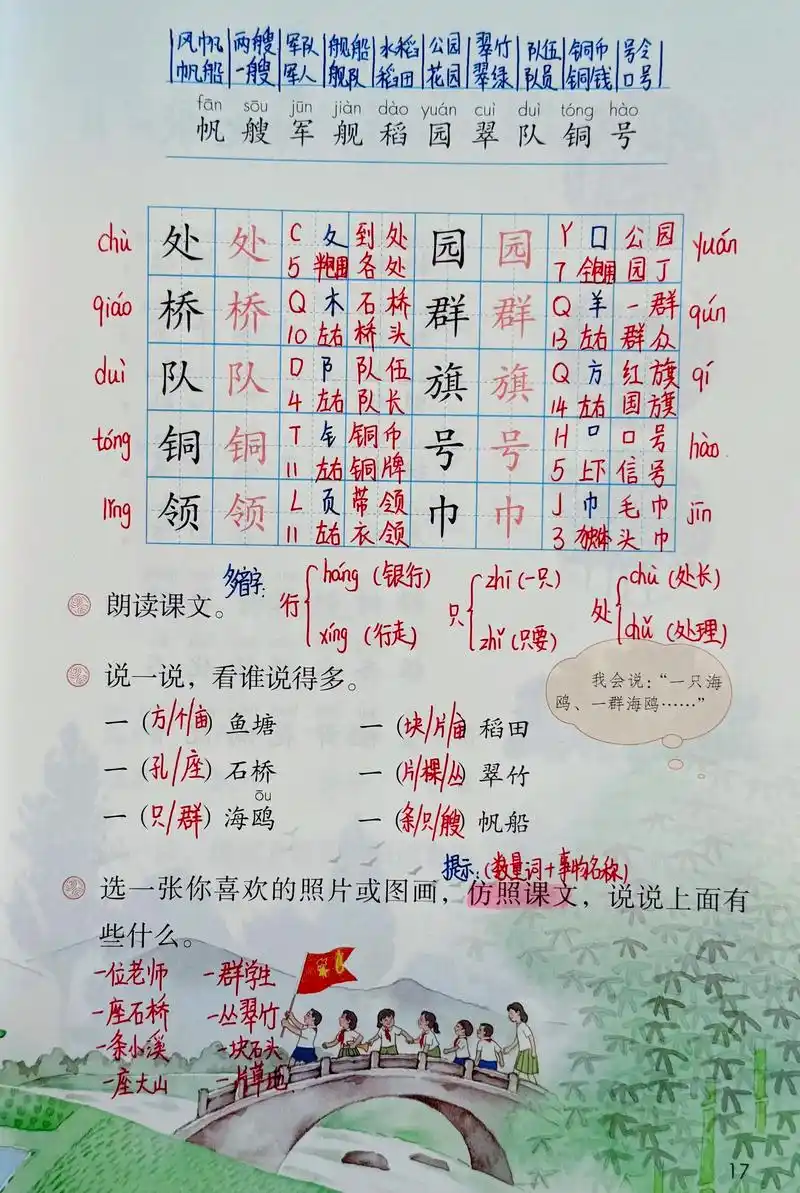 风帆 两艘 军队 舰船 水稻 公园 翠竹 队伍 铜币 号令
帆船 一艘 军人 舰队 稻田 花园 翠绿 队员 铜钱 口号
fān sōu jūn jiàn dào yuán cuì duì tóng hào
帆 艘 军 舰 稻 园 翠 队 铜 号
chù 处 处 C 夂 到处 园 园 Y 囗 公园 yuán
5 半包围 各处 7 全包围 园丁
qiáo 桥 桥 Q 木 石桥 群 群 Q 羊 一群 qún
10 左右 桥头 13 左右 群众
duì 队 队 D 阝 队伍 旗 旗 Q 方 红旗 qí
4 左右 队长 14 左右 国旗
tóng 铜 铜 T 钅 铜币 号 号 H 口 口号 hào
11 左右 铜牌 5 上下 信号
lǐng 领 领 L 页 带领 巾 巾 J 巾 毛巾 jīn
11 左右 衣领 3 独体 头巾
朗读课文。
多音字: 行 háng (银行) xíng (行走) 只 zhī (一只) zhǐ (只要) 处 chù (处长) chǔ (处理)
说一说，看谁说得多。
我会说：“一只海
鸥、一群海鸥……”
一 (方/个/亩) 鱼塘 一 (块/片/亩) 稻田
一 (孔/座) 石桥 一 (片/棵/丛) 翠竹
ōu
一 (只/群) 海鸥 一 (条/只/艘) 帆船
提示: (数量词+事物名称)
选一张你喜欢的照片或图画，仿照课文，说说上面有
些什么。
一位老师 一群学生
一座石桥 一丛翠竹
一条小溪 一块石头
一座大山 一片草地
17